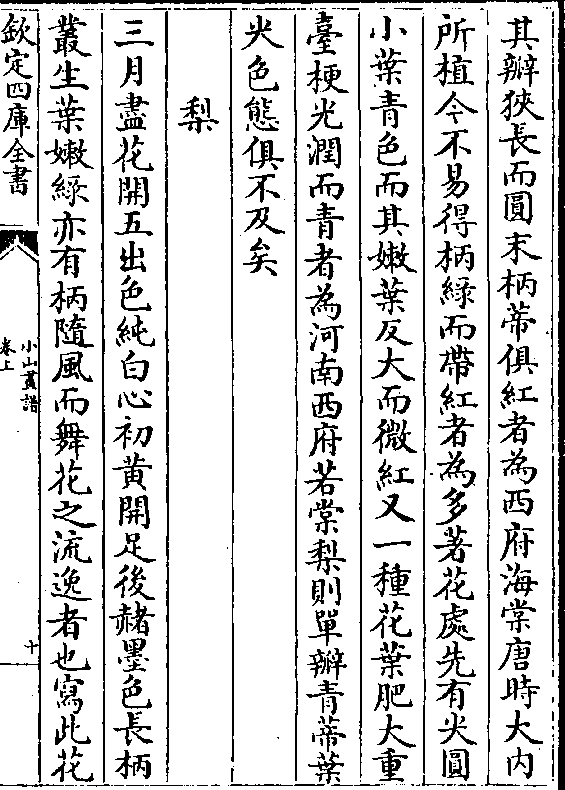 其辦狹長而圓末柄蒂俱紅者為西府海棠唐時大内
所植今不易得柄緑而帶紅者為多著花處先有尖圓
小葉青色而其嫩葉反大而微紅又一種花葉肥大重
臺梗光潤而青者為河南西府若棠梨則單瓣青蒂葉
尖色態俱不及矣
梨
三月盡花開五出色純白心初黄開足後赭墨色長柄
叢生葉嫩緑亦有柄隨風而舞花之流逸者也寫此花
欽定四庫全書
小山畫譜
卷上
十